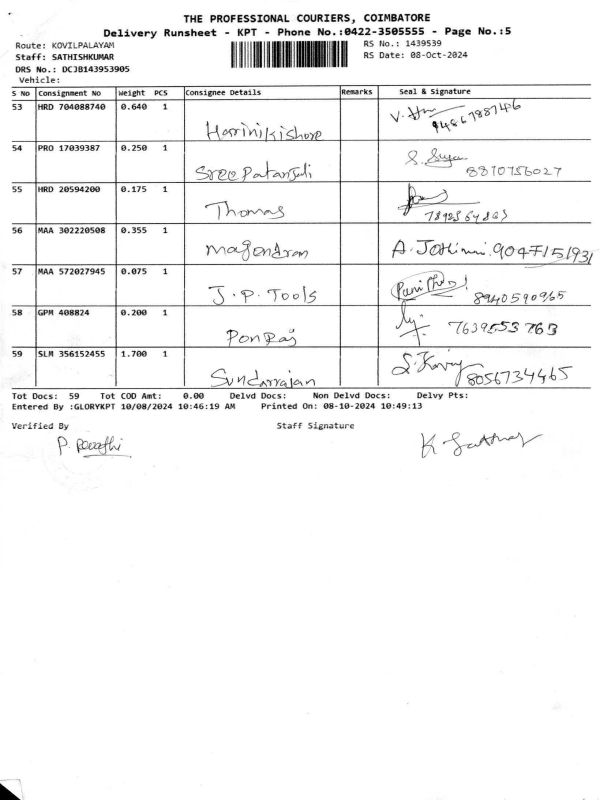 THE PROFESSIONAL COURIERS, COIMBATORE
Delivery Runsheet - KPT - Phone No.:0422-3505555 - Page No.:5
Route: KOVILPALAYAM RS No.: 1439539
Staff: SATHISHKUMAR RS Date: 08-Oct-2024
DRS No.: DCJB143953905
Vehicle:
S No Consignment No Weight PCS Consignee Details Remarks Seal & Signature
53 HRD 704088740 0.640 1 Harinikishore
54 PRO 17039387 0.250 1 Sree Patanjali S. Surya 8870756027
55 HRD 20594200 0.175 1 Thomas
56 MAA 302220508 0.355 1 Magendran A. Jothimani 9047151931
57 MAA 572027945 0.075 1 J.P. Tools 8940590965
58 GPM 408824 0.200 1 Ponraj 7639553763
59 SLM 356152455 1.700 1 Sundarrajan 8056734465
Tot Docs: 59 Tot COD Amt: 0.00 Delvd Docs: Non Delvd Docs: Delvy Pts:
Entered By :GLORYKPT 10/08/2024 10:46:19 AM Printed On: 08-10-2024 10:49:13
Verified By Staff Signature
P. Revathi